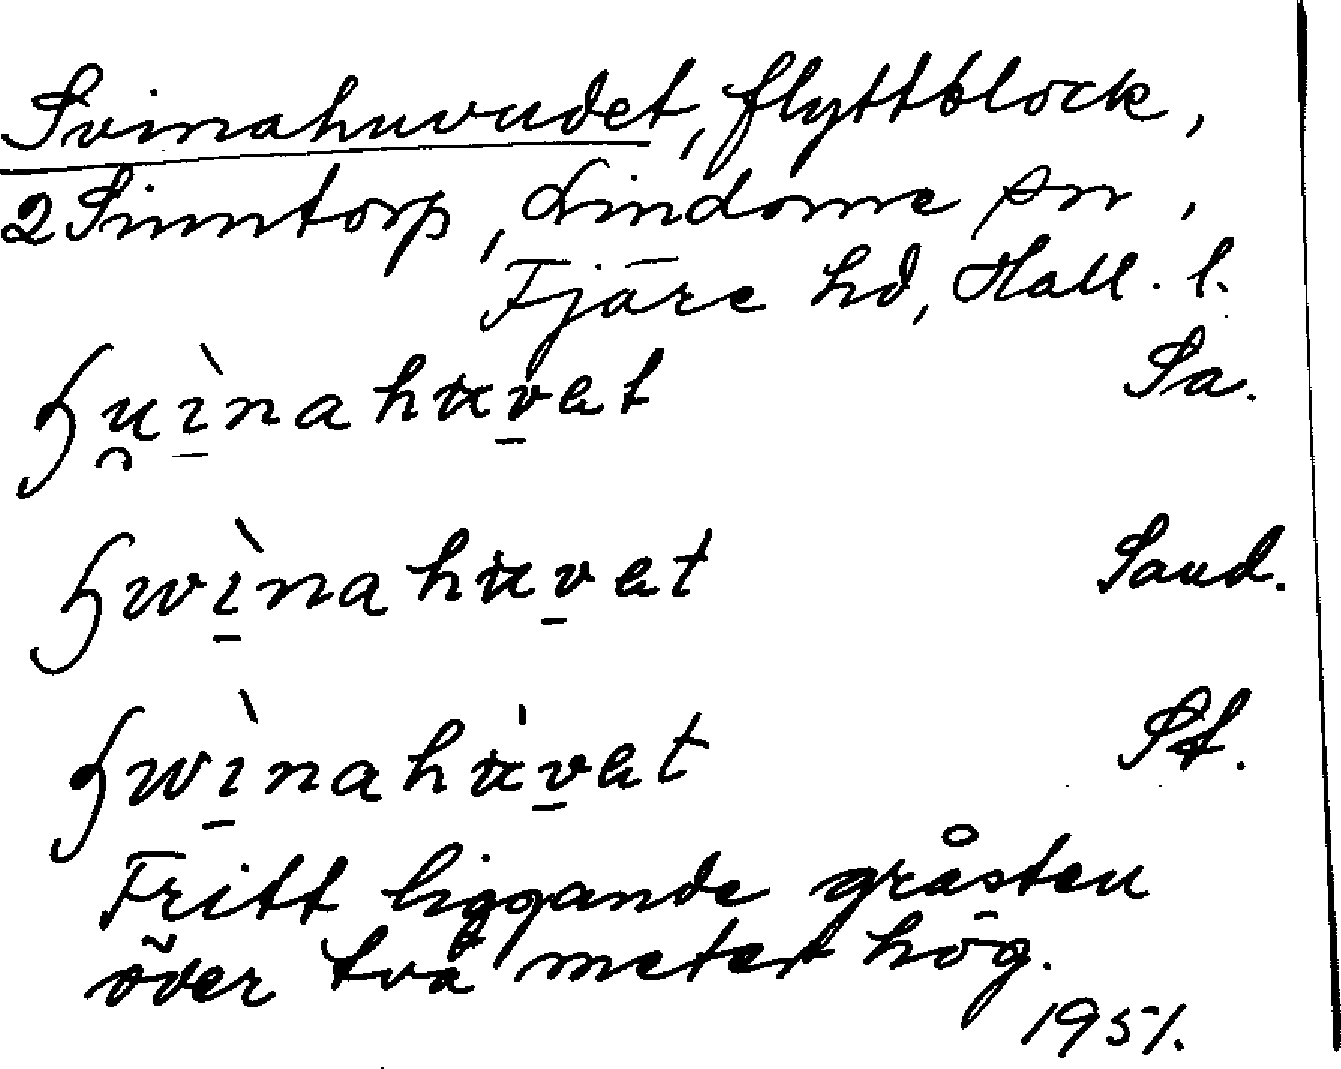 Svinahuvudet, flyttblock,
2 Sinntorp, Lindome sn,
Fjäre hd, Hall. l.
ɧu̯ìnahuvet Sa.
ɧwìnahuvet Sand.
ɧwìnahúvet St.
Fritt liggande gråsten
över två meter hög.
1951.